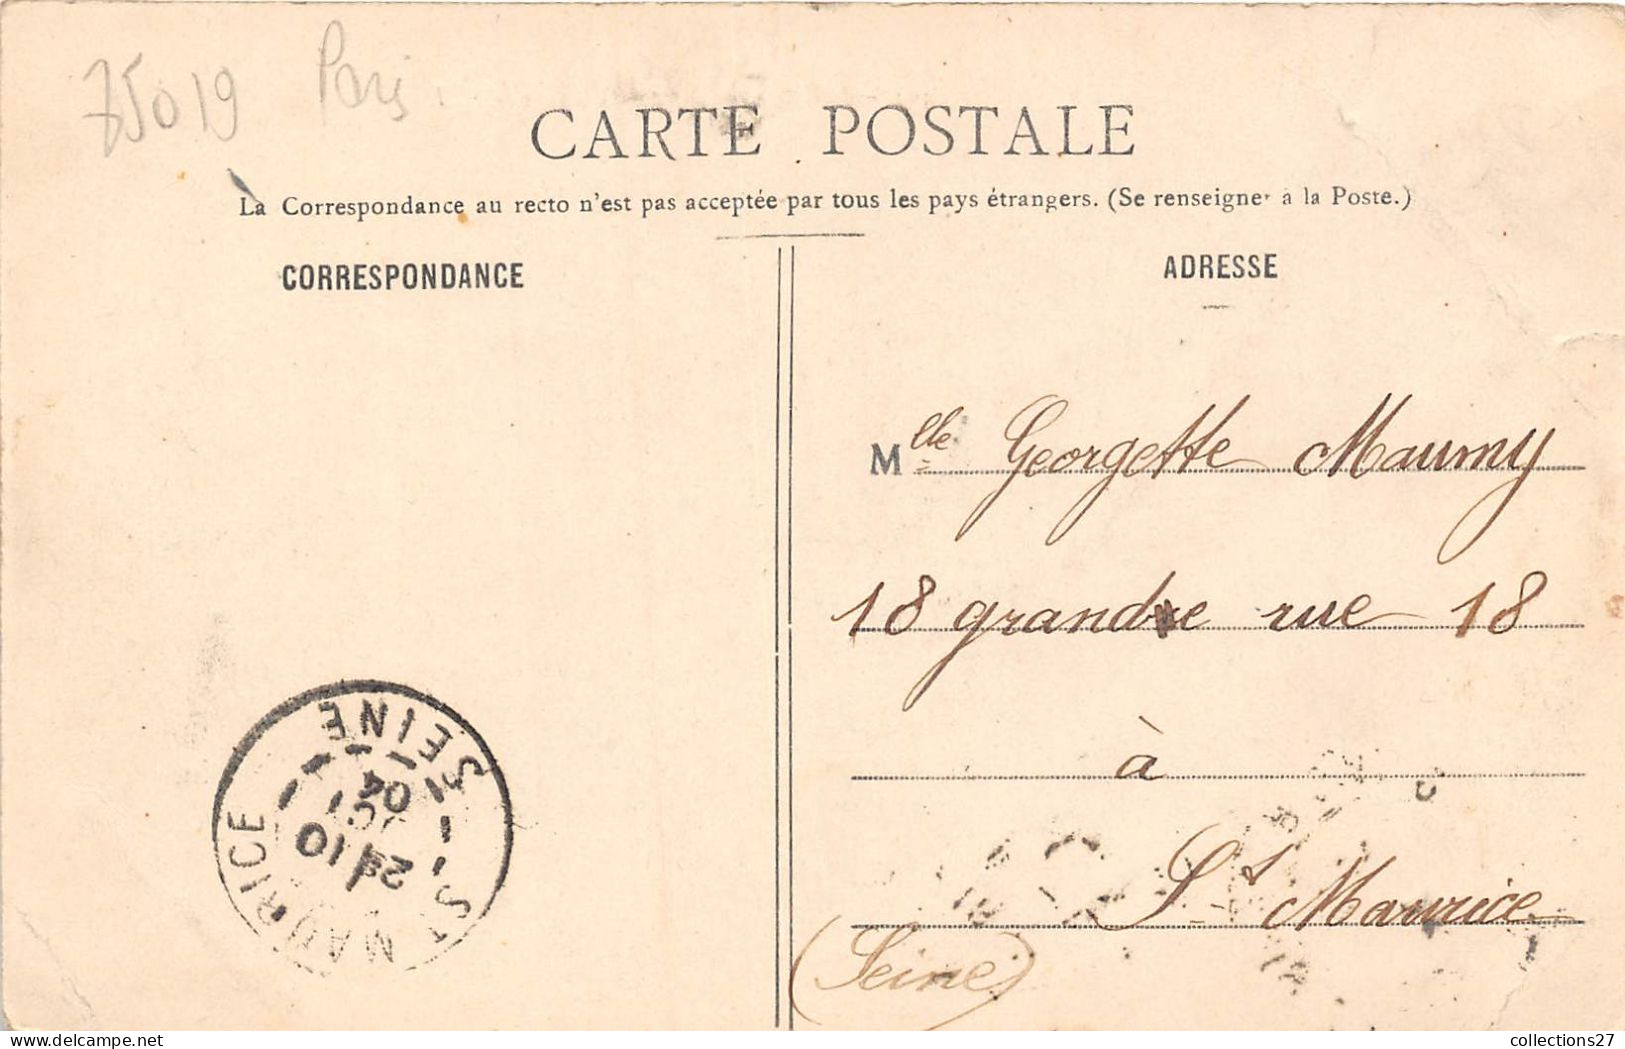 75019 Paris.
CARTE POSTALE
La Correspondance au recto n'est pas acceptée par tous les pays étrangers. (Se renseigner à la Poste.)
CORRESPONDANCE
ADRESSE
Mlle Georgette Maumy
18 grande rue 18
à
St Maurice
(Seine)
ST MAURICE
SEINE
10
04
collections27